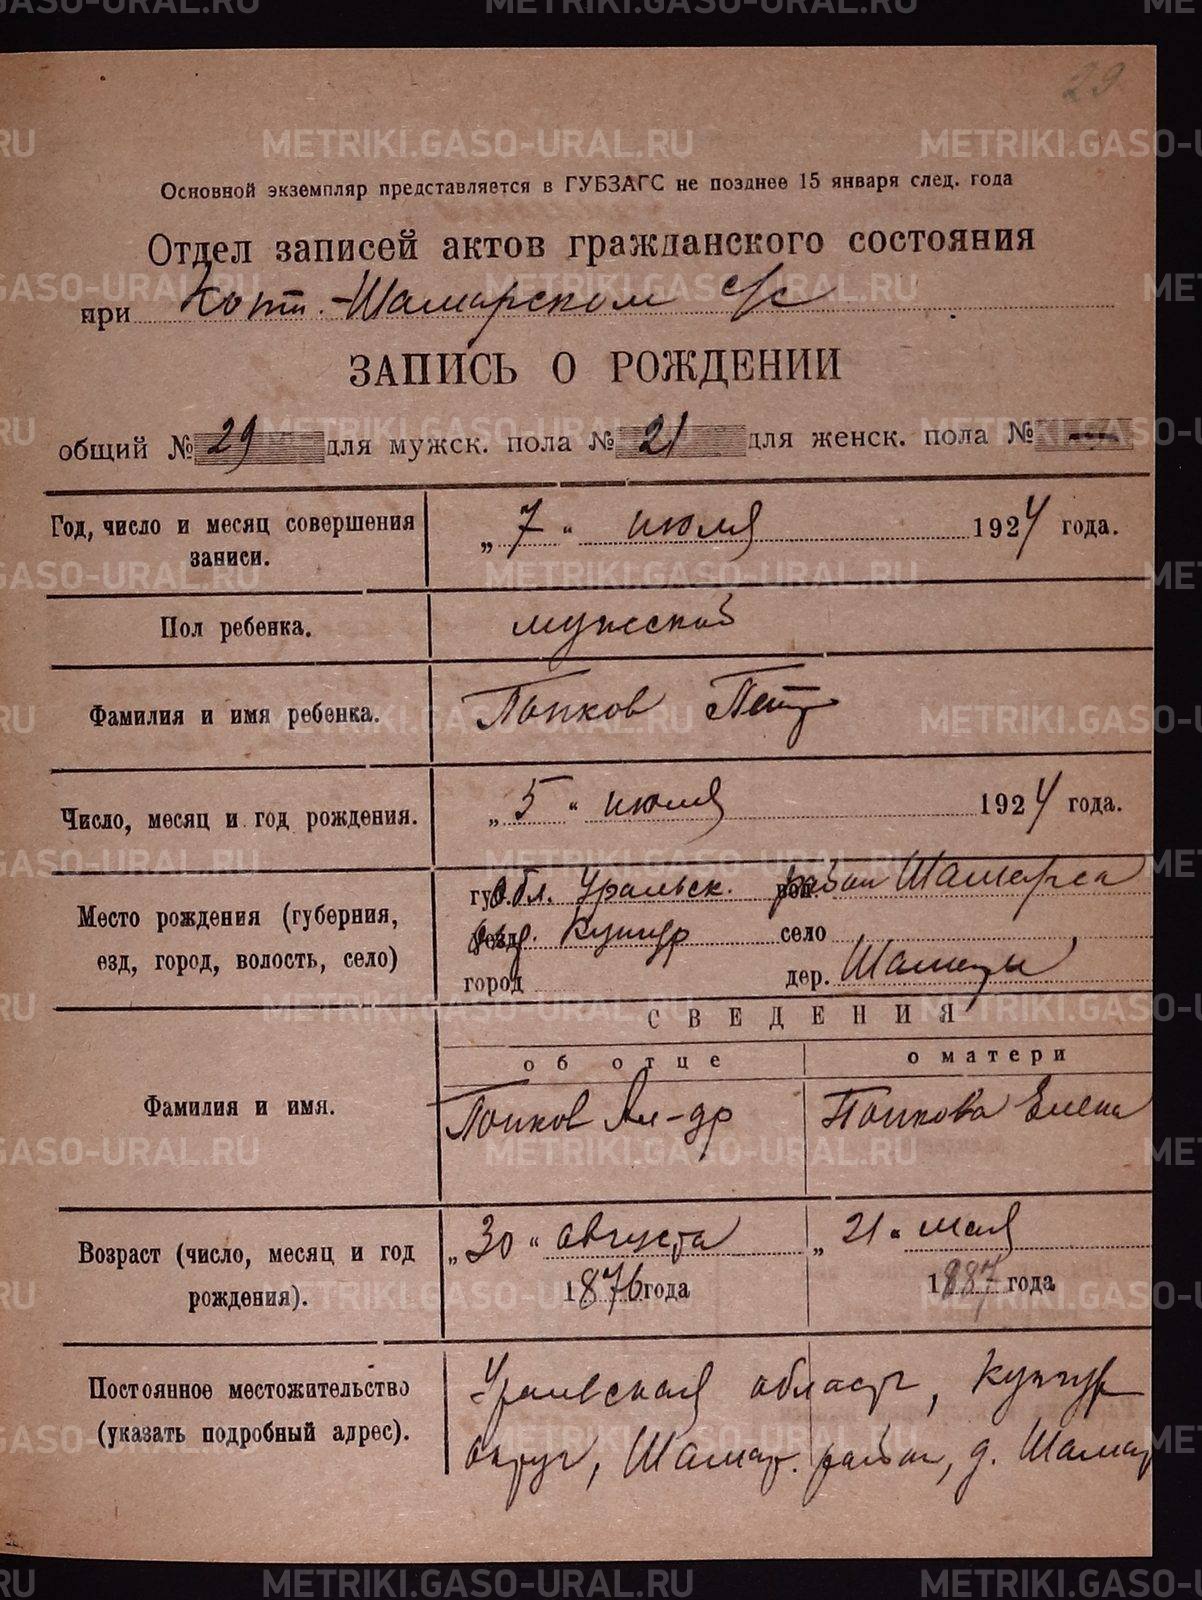 29
Основной экземпляр представляется в ГУБЗАГС не позднее 15 января след. года
Отдел записей актов гражданского состояния
при Копт.-Шамарском с/с
ЗАПИСЬ О РОЖДЕНИИ
общий № 29 для мужск. пола № 21 для женск. пола № —
Год, число и месяц совершения записи.
„ 7 “ июля 1924 года.
Пол ребенка.
мужской
Фамилия и имя ребенка.
Попков Петр
Число, месяц и год рождения.
„ 5 “ июля 1924 года.
Место рождения (губерния,
езд, город, волость, село)
обл. Уральск. район Шамарск
окр. Кунгур село
город дер. Шамары
СВЕДЕНИЯ
об отце о матери
Фамилия и имя.
Попков Ал-др Попкова Елена
Возраст (число, месяц и год
рождения).
„ 30 “ августа „ 21 “ мая
1876 года 1887 года
Постоянное местожительство
(указать подробный адрес).
Уральская область, Кунгур
округ, Шамар. район, д. Шамар
METRIKI.GASO-URAL.RU